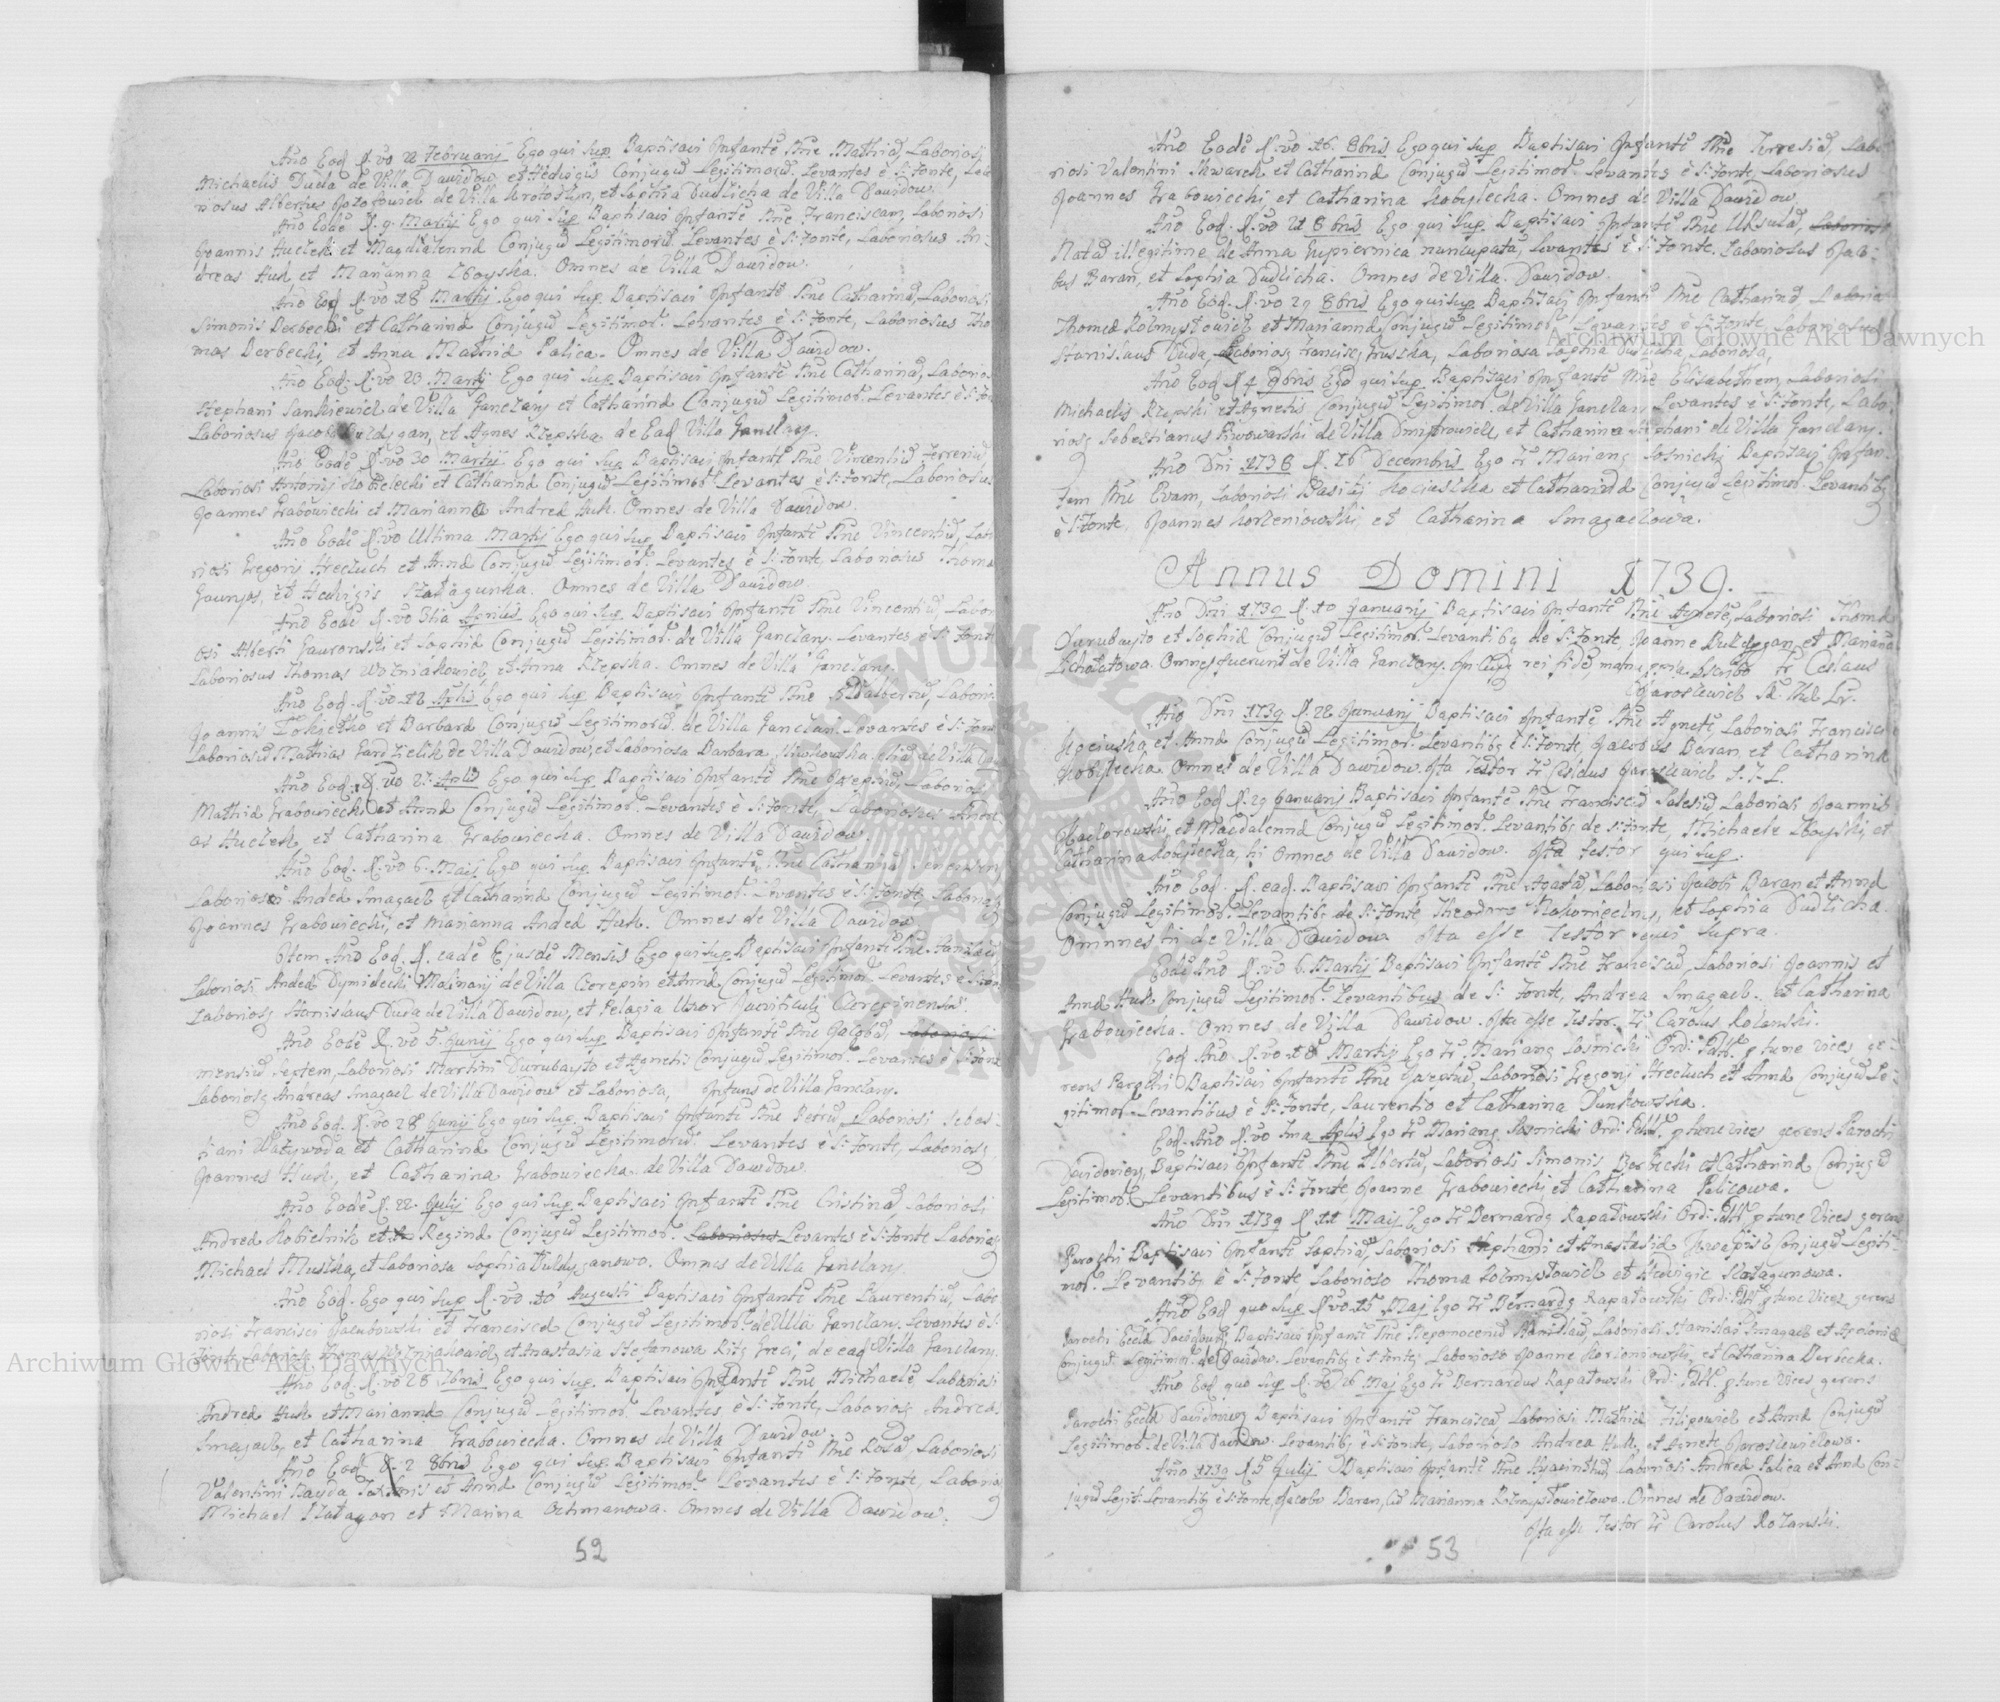 Año Eod. R. vo 22 Februarij Ego qui sup. Baptisavi Infante Nne Mathia, Laboriosi
Michaelis Duda de Villa Dawidow et Hedvigis Conjugu Legitimoru. Levantes è S: Fonte, Labo
riosus Albertus de Villa Krotoszyn, et Sophia Dudzicha de Villa Dawidow.
Año Eode R. 9. Martij Ego qui sup. Baptisavi Infante Nne Franciscam, Laboriosi
Joannis Huczek et Magdalenna Conjugu Legitimoru. Levantes è S: Fonte, Laboriosus An-
dreas Huk et Marianna Zboyska. Omnes de Villa Dawidow.
Año Eod R. vo 18 Martij Ego qui sup. Baptisavi Infante Nne Catharina, Laboriosi
Simonis Berbecki et Catharina Conjugu Legitimor. Levantes è S: Fonte, Laboriosus Tho
mas Berbecki, et Anna Mathia Palica. Omnes de Villa Dawidow.
Año Eod. R. vo 23 Martij Ego qui sup. Baptisavi Infante Nne Catharina, Laborios
Stephani Sankiewicz de Villa Ganczary et Catharina Conjugu Legitimor. Levantes è S: Fon
Laboriosus Jacob Buldygan, et Agnes Rzepska de Ead Villa Ganczary.
Año Eode R. vo 30 Martij Ego qui sup. Baptisavi Infante Nne Vincentiu Ferreriu
Laboriosi Antonij Kobielecki et Catharina Conjugu Legitimor Levantes è S: Fonte, Laboriosus
Joannes Grabowiecki et Marianna Andrea Huk. Omnes de Villa Dawidow.
Año Eode R. vo Ultima Martij Ego qui sup. Baptisavi Infante Nne Vincentiu, Labo
riosi Gregorij Hrecluch et Anna Conjugu Legitimor. Levantes è S: Fonte, Laboriosus Thoma
et Hedvigis Omnes de Villa Dawidow.
Año Eode R. vo 3tia Aprilis Ego qui sup. Baptisavi Infante Nne Vincentiu Labori
osi Alberti Gawronski et Sophia Conjugu Legitimor. de Villa Ganczary. Levantes è S: Fonte
Laboriosus Thomas Wozniakowicz, et Anna Rzepska. Omnes de Villa Ganczary.
Año Eod. R. vo 12 Aplis Ego qui sup. Baptisavi Infante Nne Adalbertu, Laborio
Joannis et Barbara Conjugu Legitimoru. de Villa Ganczary. Levantes è S: Fonte
Laboriosu Mathias de Villa Dawidow, et Laboriosa Barbara
Año Eod. R. vo 21. Aplis Ego qui sup. Baptisavi Infante Nne Josephu, Laboriosi
Mathia Grabowiecki et Anna Conjugu Legitimor. Levantes è S: Fonte, Laboriosus Andre
as Huczek, et Catharina Grabowiecka. Omnes de Villa Dawidow.
Año Eod. R. vo 6. Maij Ego qui sup. Baptisavi Infante, Nne Catharina
Laboriosi Andrea Smagacz et Catharina Conjugu Legitimor. Levantes è S: Fonte Laborios
Joannes Grabowiecki, et Marianna Andrea Huk. Omnes de Villa Dawidow.
Item Año Eod. R. eade Ejusde Mensis Ego qui sup. Baptisavi Infante Nne
Laboriosi Andrea Dymidecki de Villa Czerepin et Anna Conjugu Legitimor Levantes è S: Fon
Laborios Stanislaus Duda de Villa Dawidow, et Pelagia Uxor Czerepinensis.
Año Eode R. vo 5. Junij Ego qui sup. Baptisavi Infante Nne Laboriosi
mensiu Septem, Laboriosi Martini Durubayto et Agnetis Conjugu Legitimor. Levantes è S: Fonte
Laborios Andreas Smagacz de Villa Dawidow et Laboriosa, de Villa Ganczary.
Año Eod. R. vo 28 Junij Ego qui sup. Baptisavi Infante Nne Petru, Laboriosi Sebas-
tiani et Catharina Conjugu Legitimoru. Levantes è S: Fonte, Laborios
Joannes Huk, et Catharina Grabowiecka. de Villa Dawidow.
Año Eode R. 22. Julij Ego qui sup. Baptisavi Infante Nne Cristina, Laboriosi
Andrea Kobielnik et Regina Conjugu Legitimor. Laboriosus Levantes è S: Fonte Laborios
Michael Muszka, et Laboriosa Sophia Buldyganowa. Omnes de Villa Ganczary.
Año Eod. Ego qui sup R. vo 10 Augusti Baptisavi Infante Nne Laurentiu, Labo
riosi Francisci Jakubowski et Francisca Conjugu Legitimor de Villa Ganczary. Levantes è S:
Fonte Laborios Thomas Wozniakowicz, et Anastasia Stefanowa Ritg Greci, de ead Villa Ganczary.
Año Eod. R. vo 28 7bris Ego qui sup. Baptisavi Infante Nne Michaele, Laboriosi
Andrea Huk et Marianna Conjugu Legitimor. Levantes è S: Fonte, Laborios Andreas
Smagacz, et Catharina Grabowiecka. Omnes de Villa Dawidow.
Año Eod. R. 2 8bris Ego qui sup. Baptisavi Infante Nne Rosa, Laboriosi
Valentini et Anna Conjugu Legitimor. Levantes è S: Fonte, Laborios
Michael et Marina Ochmanowa. Omnes de Villa Dawidow.
52
Año Eode R. vo 16. 8bris Ego qui sup Baptisavi Infante Nne Teresia, Labo
riosi Valentini Skwarek et Catharina Conjugu Legitimor. Levantes è S: Fonte, Laboriosus
Joannes Grabowiecki, et Catharina Kobylecka. Omnes de Villa Dawidow.
Año Eod. R. vo 21 8bris Ego qui sup. Baptisavi Infante Nne Ursula, Laboriosi
Nata illegitime de Anna nuncupata, Levantes è S: Fonte. Laboriosus Jaco-
bus Baran, et Sophia Dudzicha. Omnes de Villa Dawidow.
Año Eod. R. vo 29 8bris Ego qui sup. Baptisavi Infante Nne Catharina, Laborio
Thomea Rozmyslowicz et Marianna Conjugu Legitimor. Levantes è S: Fonte Laboriosus
Stanislaus Duda, Laborios Francisc Gruszka, Laboriosa Sophia Dudzicha, Laboriosa,
Año Eod R 4 9bris Ego qui sup. Baptisavi Infante Nne Elisabethem, Laboriosi
Michaelis Rzepski et Agnetis Conjugu Legitimor. de Villa Ganczary Levantes è S: Fonte, Labo-
rios Sebestianus Piwowarski de Villa Dmitrowice, et Catharina Stephani de Villa Ganczary.
Año Dni 1738 R. 16 Decembris Ego Fr Marianq Sosnicki Baptisavi Infan-
tem Nne Evam, Laboriosi Basilij Kociuszka et Catharina Conjugu Legitimor. Levantibq
è S: Fonte, Joannes Korzeniowski, et Catharina Smagaczowa.
Annus Domini 1739.
Año Dni 1739 R. 10 Januarij Baptisavi Infante Nne Agnete, Laboriosi Thoma
Durubayto et Sophia Conjugu Legitimor. Levantibq de S: Fonte, Joanne Buldygan, et Mariana
Omnes fuerunt de Villa Ganczary. In cujq rei fide, manu ppria scribo Fr. Ceslaus
Jaroslewicz
Año Dni 1739 R. 28 Januarij Baptisavi Infante Nne Agnete, Laboriosi Francisci
Kociuszka et Anna Conjugu Legitimor. Levantibq è S: Fonte, Jacobus Baran et Catharina
Kobylecka. Omnes de Villa Dawidow. Ita testor Fr Ceslaus Jaroslewicz S. T. L.
Año Eod R. 29 Januarij Baptisavi Infante Nne Franciscu Salesiu Laboriosi Joannis
et Magdalenna Conjugu Legitimor. Levantibq de S: Fonte, Michaele Zboyski, et
Catharina Kobylecka, hi Omnes de Villa Dawidow. Ita testor qui sup.
Año Eod. R. ead. Baptisavi Infante Nne Agata, Laboriosi Jacobi Baran et Anna
Conjugu Legitimor. Levantibq de S: Fonte Theodoro Nakonieczny, et Sophia Dudzicha
Omnnes hi de Villa Dawidow Ita esse Testor veui Supra.
Eode Año R. vo 6. Martij Baptisavi Infante Nne Francisca, Laboriosi Joannis et
Anna Huk Conjugu Legitimor. Levantibus de S: Fonte, Andrea Smagacz. et Catharina
Grabowiecka. Omnes de Villa Dawidow. Ita esse Testor. Fr Carolus Rozanski.
Eod Año R. vo 18 Martij Ego Fr Marianq Sosnicki Ordi: Pdt. p tunc vices ge-
rens Parochi Baptisavi Infante Nne Josephu, Laboriosi Gregorij Hrecluch et Anna Conjugu Le-
gitimor. Levantibus è S: Fonte, Laurentio et Catharina Dunkowska.
Eod. Año R. vo 7ma Aplis Ego Fr Marianq Sosnicki Ordi: Pdt. p tunc vices gerens Parochi
Davidovien, Baptisavi Infante Nne Albertu, Laboriosi Simonis Berbecki et Catharina Conjugu
Legitimor. Levantibus è S: Fonte Joanne Grabowiecki et Catharina Palicowa.
Año Dni 1739 R 11 Maij Ego Fr Bernardq Rapalowski Ordi: Pdt. p tunc vices gerens
Parochi Baptisavi Infante Sophia, Laboriosi Stephani et Anastasia Conjugu Legiti-
mor. Levantibq è S: Fonte Laborioso Thoma Rozmyslowicz et Hedvigie
Año Eod quo sup R. vo 15 Maj Ego Fr Bernardq Rapalowski Ordi: Pdt. p tunc Vices gerens
Parochi Eccla Dawidovien Baptisavi Infante Nne Nepomocenu Stanislau, Laboriosi Stanislai Smagacz et Apolonia
Conjugu Legitimor. de Dawidow. Levantibq è S: Fonte, Laborioso Joanne Korzeniowski, et Catharina Berbecka.
Año Eod quo sup R. vo 26 Maj Ego Fr Bernardus Rapalowski Ordi: Pdt. p tunc Vices gerens
Parochi Eccla Davidovien Baptisavi Infante Francisca Laboriosi Mathia Filipowicz et Anna Conjugu
Legitimor. de Villa Dawidow. Levantibq è S: Fonte, Laborioso Andrea Huk, et Agnete Jaroslewiczowa.
Año 1739 R 5 Julij Baptisavi Infante Nne Hyacinthu, Laboriosi Andrea Palica et Anna Con-
jugu Legit: Levantibq è S: Fonte, Jacobo Baran, cu Marianna Rozmyslowiczowa. Omnes de Dawidow.
Ita esse Testor Fr Carolus Rozanski.
53
Archiwum Główne Akt Dawnych
Archiwum Główne Akt Dawnych